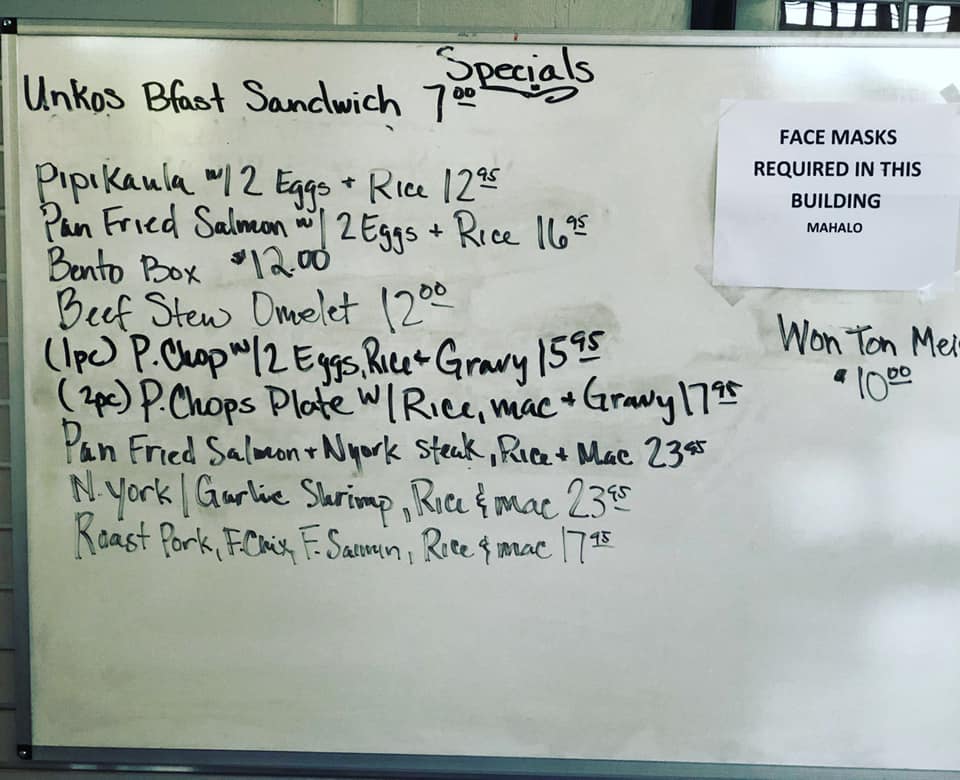 Specials
Unkos Bfast Sandwich 7.00
Pipikaula w/ 2 Eggs + Rice 12.95
Pan Fried Salmon w/ 2 Eggs + Rice 16.95
Bento Box $12.00
Beef Stew Omelet 12.00
(1pc) P.Chop w/ 2 Eggs, Rice + Gravy 15.95
(2pc) P.Chops Plate w/ Rice, mac + Gravy 17.95
Pan Fried Salmon + Nyork Steak, Rice + Mac 23.95
N.York / Garlic Shrimp, Rice & mac 23.95
Roast Pork, F.Chix, F. Saimin, Rice & mac 17.95
FACE MASKS
REQUIRED IN THIS
BUILDING
MAHALO
Won Ton
$10.00